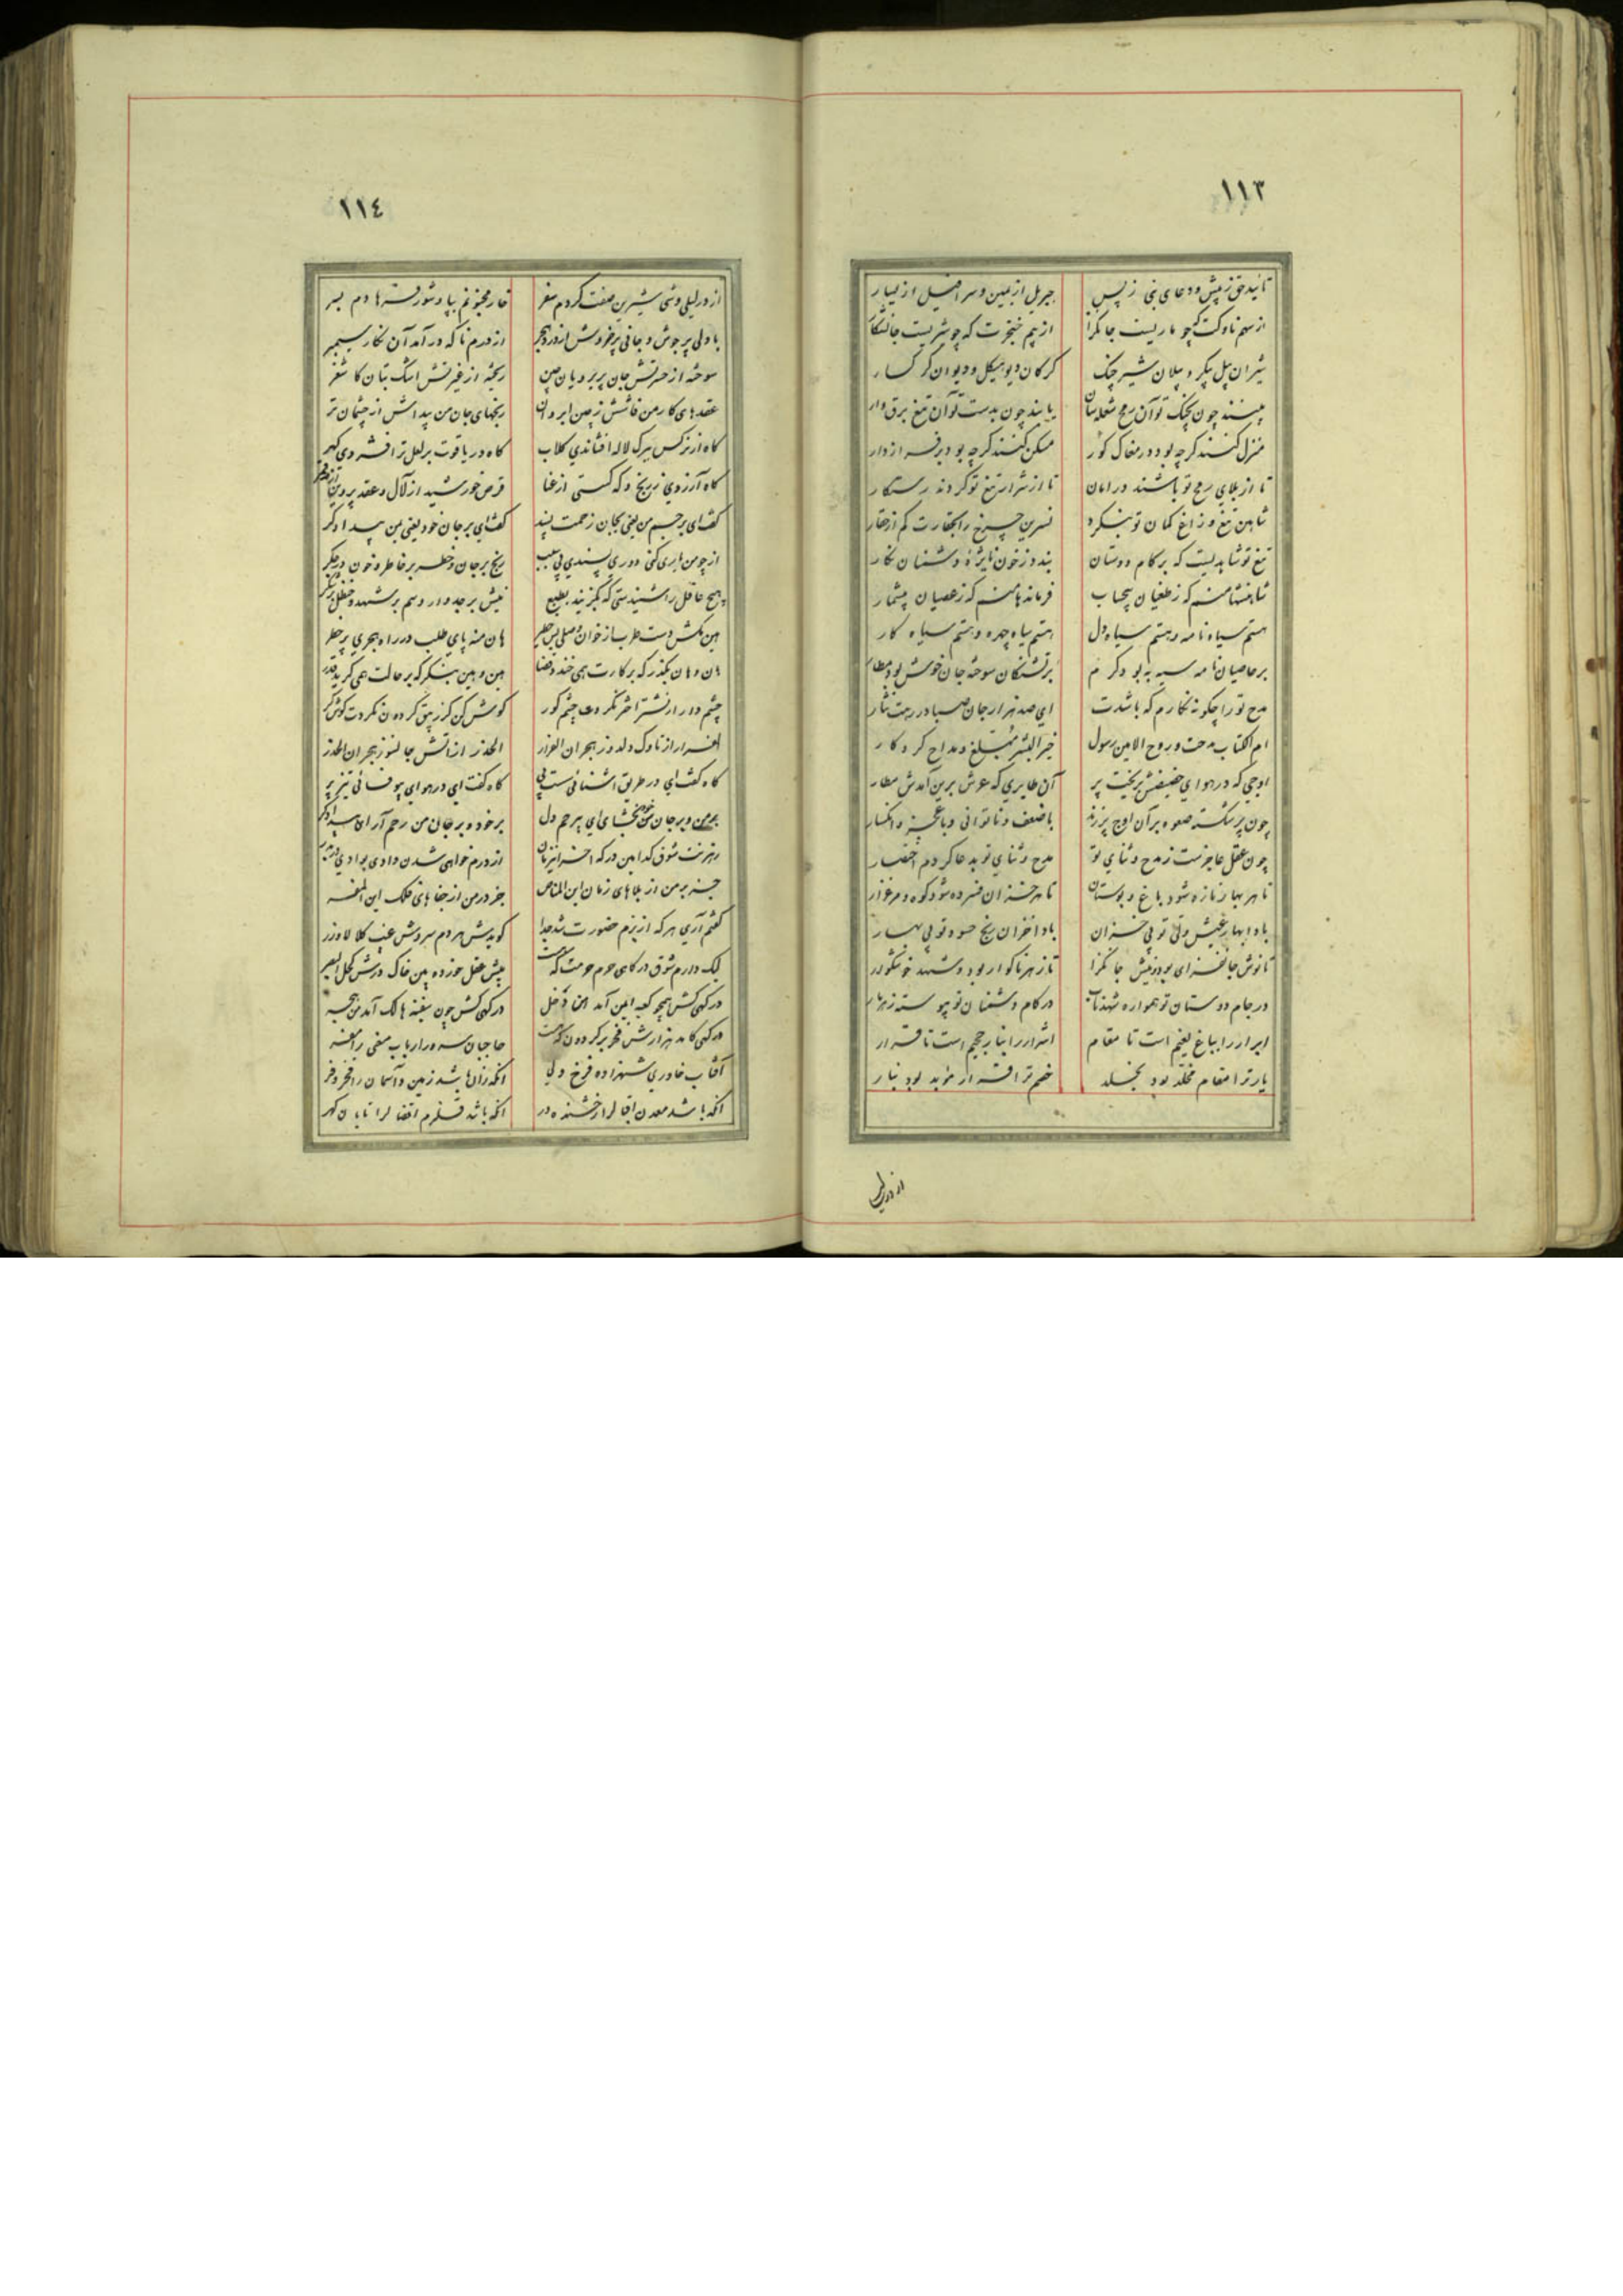 ١١٣
تائید حق ز پیش و دعای نبی ز پس جبریل از یمین و سرافیل از یسار
از سهم ناوکت که چو ماریست جانگزا از بیم خنجرت که چو شیریست جانشکار
شیران پیل پیکر و پیلان شیر چنک کرکان دیو هیکل و دیوان کرکسار
بینند چون بچنک تو آن رمح شعله سان یابند چون بدست تو آن تیغ برق وار
منزل کنند کرچه بود در مغاک کور مسکن کنند کرچه بود بر فراز دار
تا از بلای رمح تو باشند در امان تا از شرار تیغ تو کردند رستکار
شاهین تیغ و زاغ کمان تو بنکرد نسرین چرخ را بحقارت کم از
تیغ تو شاهدیست که بر کام دوستان بندد ز خون نایژه دشمنان نکار
شاهنشها منم که ز طغیان بیحساب فرماندها منم که ز عصیان بیشمار
هستم سیاه نامه و هستم سیاه دل هستم سیاه چرده و هستم سیاه کار
بر عاصیان نامه سیه به بود کرم بر تشنکان سوخته جان خوش بود
مدح تو را چکونه نکارم که باشدت ای صد هزار جان صبا در رهت نثار
ام الکتاب مدحت و روح الامین رسول خیر البشر مبلغ و مداح کردکار
اوجی که در هوای حضیضش بریخت پر آن طایری که عرش برین آمدش مطار
چون پر شکسته صعوه بر آن اوج پر زند با ضعف و ناتوانی و با عجز و انکسار
چون عقل عاجز است ز مدح و ثنای تو مدح و ثنای تو بدعا کردم اختصار
تا هر بهار تازه شود باغ و بوستان تا هر خزان فسرده شود کوه و مرغزار
بادا بهار عیش ولی تو بی خزان بادا خزان رنج حسود تو بی بهار
تا نوش جانفزای بود نیش جانکزا تا زهر ناکوار بود شهد خوشکوار
در جام دوستان تو همواره شهد ناب در کام دشمنان تو پیوسته زهر مار
ابرار را بباغ نعیم است تا مقام اشرار را بنار جحیم است تا قرار
یار ترا مقام مخلد بود بخلد خصم ترا قرار مؤبد بود بنار
از در لیلی
١١٤
از در لیلی وشی شیرین صفت کردم سفر خار مجنونم بپا و شور فرهادم بسر
با دلی پر جوش و جانی پر خروش از درد هجر از درم ناکه در آمد آن نکار سیمبر
سوخته از حسرتش جان پریرویان چین ریخته از غیرتش اشک بتان کاشغر
عقدهای کار من فاشش ز چین ابروان رنجهای جان من پیداش از چشمان تر
کاه از نرکس ببرک لاله افشاندی کلاب کاه در یاقوت بر لعل تر افشردی کهر
کاه آزردی ز رنج و که کسستی از عنا قرص خورشید از لآل و عقد پروین از قمر
کفت ای بر جسم من یعنی بجان زحمت پسند کفت ای بر جان خود یعنی بمن بیدادکر
از چو من یاری کنی دوری پسندی بی سبب رنج بر جان و خطر بر خاطر و خون در جکر
هیچ عاقل را شنیدستی که بکزیند بطبع نیش بر جدوار و سم بر شهد و حنظل بر شکر
هین مکش دست طرب از خوان وصلی بی خطر هان منه پای طلب در راه هجری پر خطر
هان و هان بکذر که بر کارت همی خندد قضا هین و هین بنکر که بر حالت همی کرید قدر
چشم دار از نشتر اختر نکردت چشم کور کوش کن کز زیبق کردون نکردت کوش کر
الفرار از ناوک دلدوز هجران الفرار الحذر از آتش جانسوز هجران الحذر
کاه کفت ای در طریق آشنائی سست پی کاه کفت ای در هوای بیوفائی تیز پر
بر من و بر جان من بخشای ای بیرحم دل بر خود و بر جان من رحم آر ای بیدادکر
رهزنت شوق کدامین درکه است از درم خواهی شدن وادی بوادی در بدر
جز بر من از بلاهای زمان این المناص جز در من از جفاهای فلک این المفر
کفتم آری هر که از بزم حضورت شد جدا کویدش هر دم سروش غیب کلا لا وزر
لیک دارم شوق درکاهی حرم حرمت که هست پیش عقل خورده بین خاک درش کحل البصر
درکهی کش همچو کعبه ایمن آمد من دخل درکهی کش چون سفینه هالک آمد من هجر
درکهی کامد هزارش فخر بر کردون که هست حاجبان سرور ارباب معنی را مقر
آفتاب خاوری شهزاده فرخ ولی انکه زان باشد زمین و آسمان را فخر و فر
انکه باشد معدن اقبال را رخشنده در انکه باشد قلزم افضال را تابان کهر